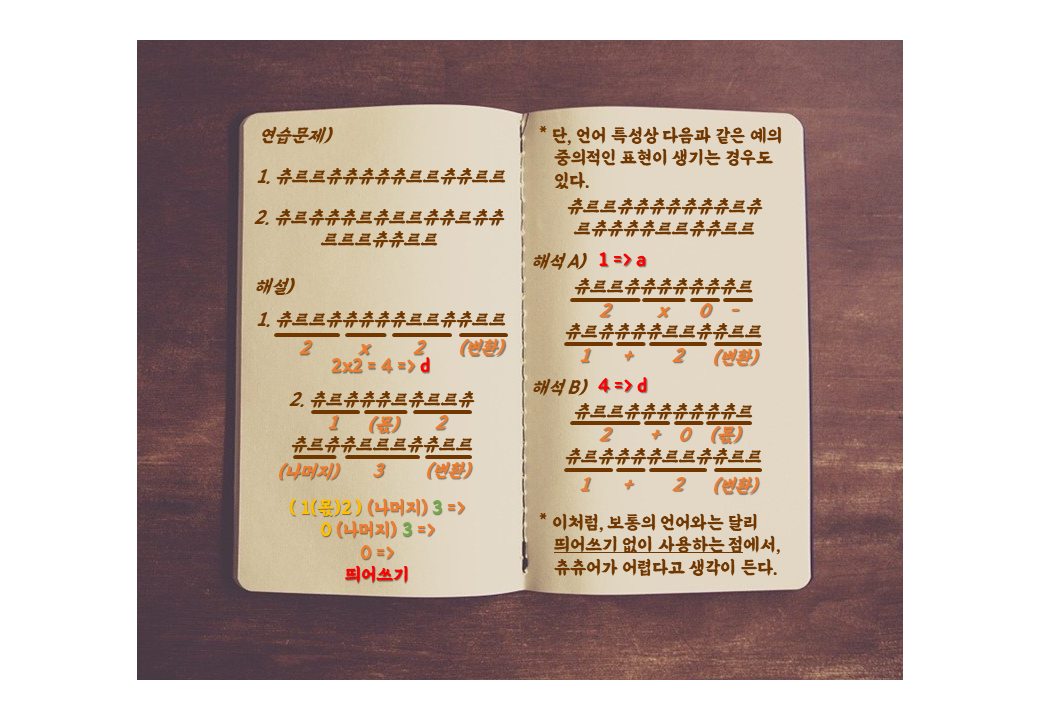 연습문제)
1. 츄르르츄츄츄츄츄르르츄츄르르
2. 츄르츄츄츄르츄르르츄츄르츄츄
르르르츄츄르르
해설)
1. 츄르르츄츄츄츄츄르르츄츄르르
2 x 2 (변환)
2x2 = 4 => d
2. 츄르츄츄츄르츄르르츄
1 (몫) 2
츄르츄츄르르르츄츄르르
(나머지) 3 (변환)
( 1(몫)2 ) (나머지) 3 =>
0 (나머지) 3 =>
0 =>
띄어쓰기
* 단, 언어 특성상 다음과 같은 예의
중의적인 표현이 생기는 경우도
있다.
츄르르츄츄츄츄츄츄츄르츄
르츄츄츄츄르르츄츄르르
해석 A) 1 => a
츄르르츄츄츄츄츄츄츄르
2 x 0 -
츄르츄츄츄츄르르츄츄르르
1 + 2 (변환)
해석 B) 4 => d
츄르르츄츄츄츄츄츄츄르
2 + 0 (몫)
츄르츄츄츄츄르르츄츄르르
1 + 2 (변환)
* 이처럼, 보통의 언어와는 달리
띄어쓰기 없이 사용하는 점에서,
츄츄어가 어렵다고 생각이 든다.